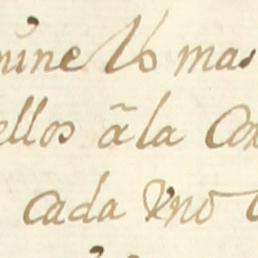 mine lo mas
ellos ã la Co
cada vno